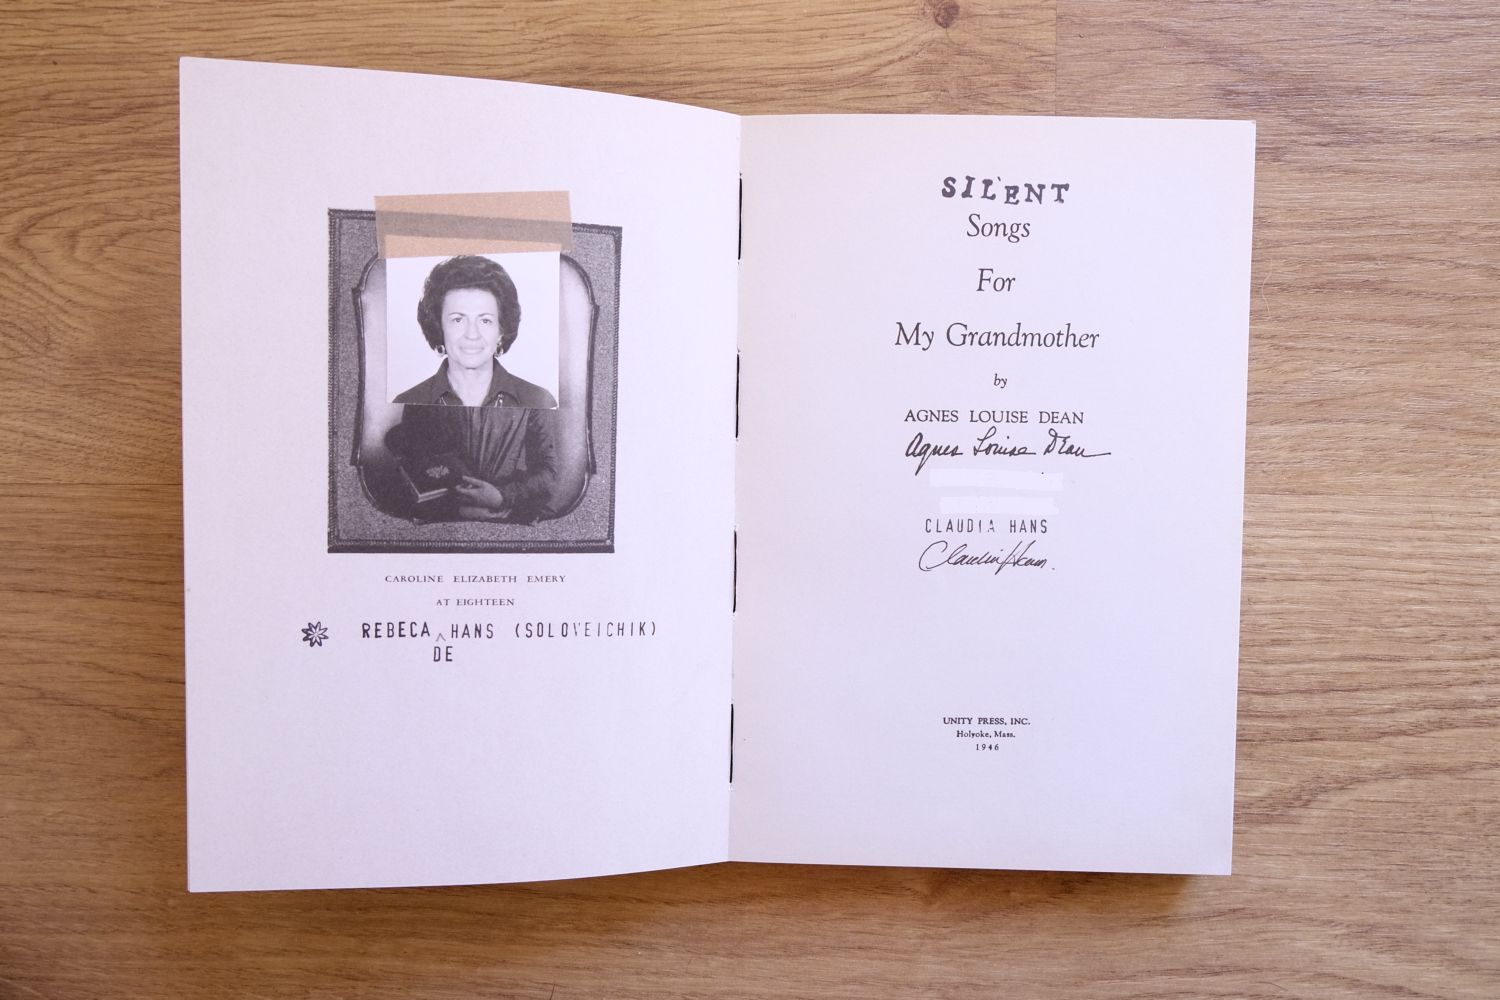 CAROLINE ELIZABETH EMERY
AT EIGHTEEN
REBECA ^ HANS (SOLOVEICHIK)
DE
SILENT
Songs
For
My Grandmother
by
AGNES LOUISE DEAN
Agnes Louise Dean
CLAUDIA HANS
Claudia Hans.
UNITY PRESS, INC.
Holyoke, Mass.
1946